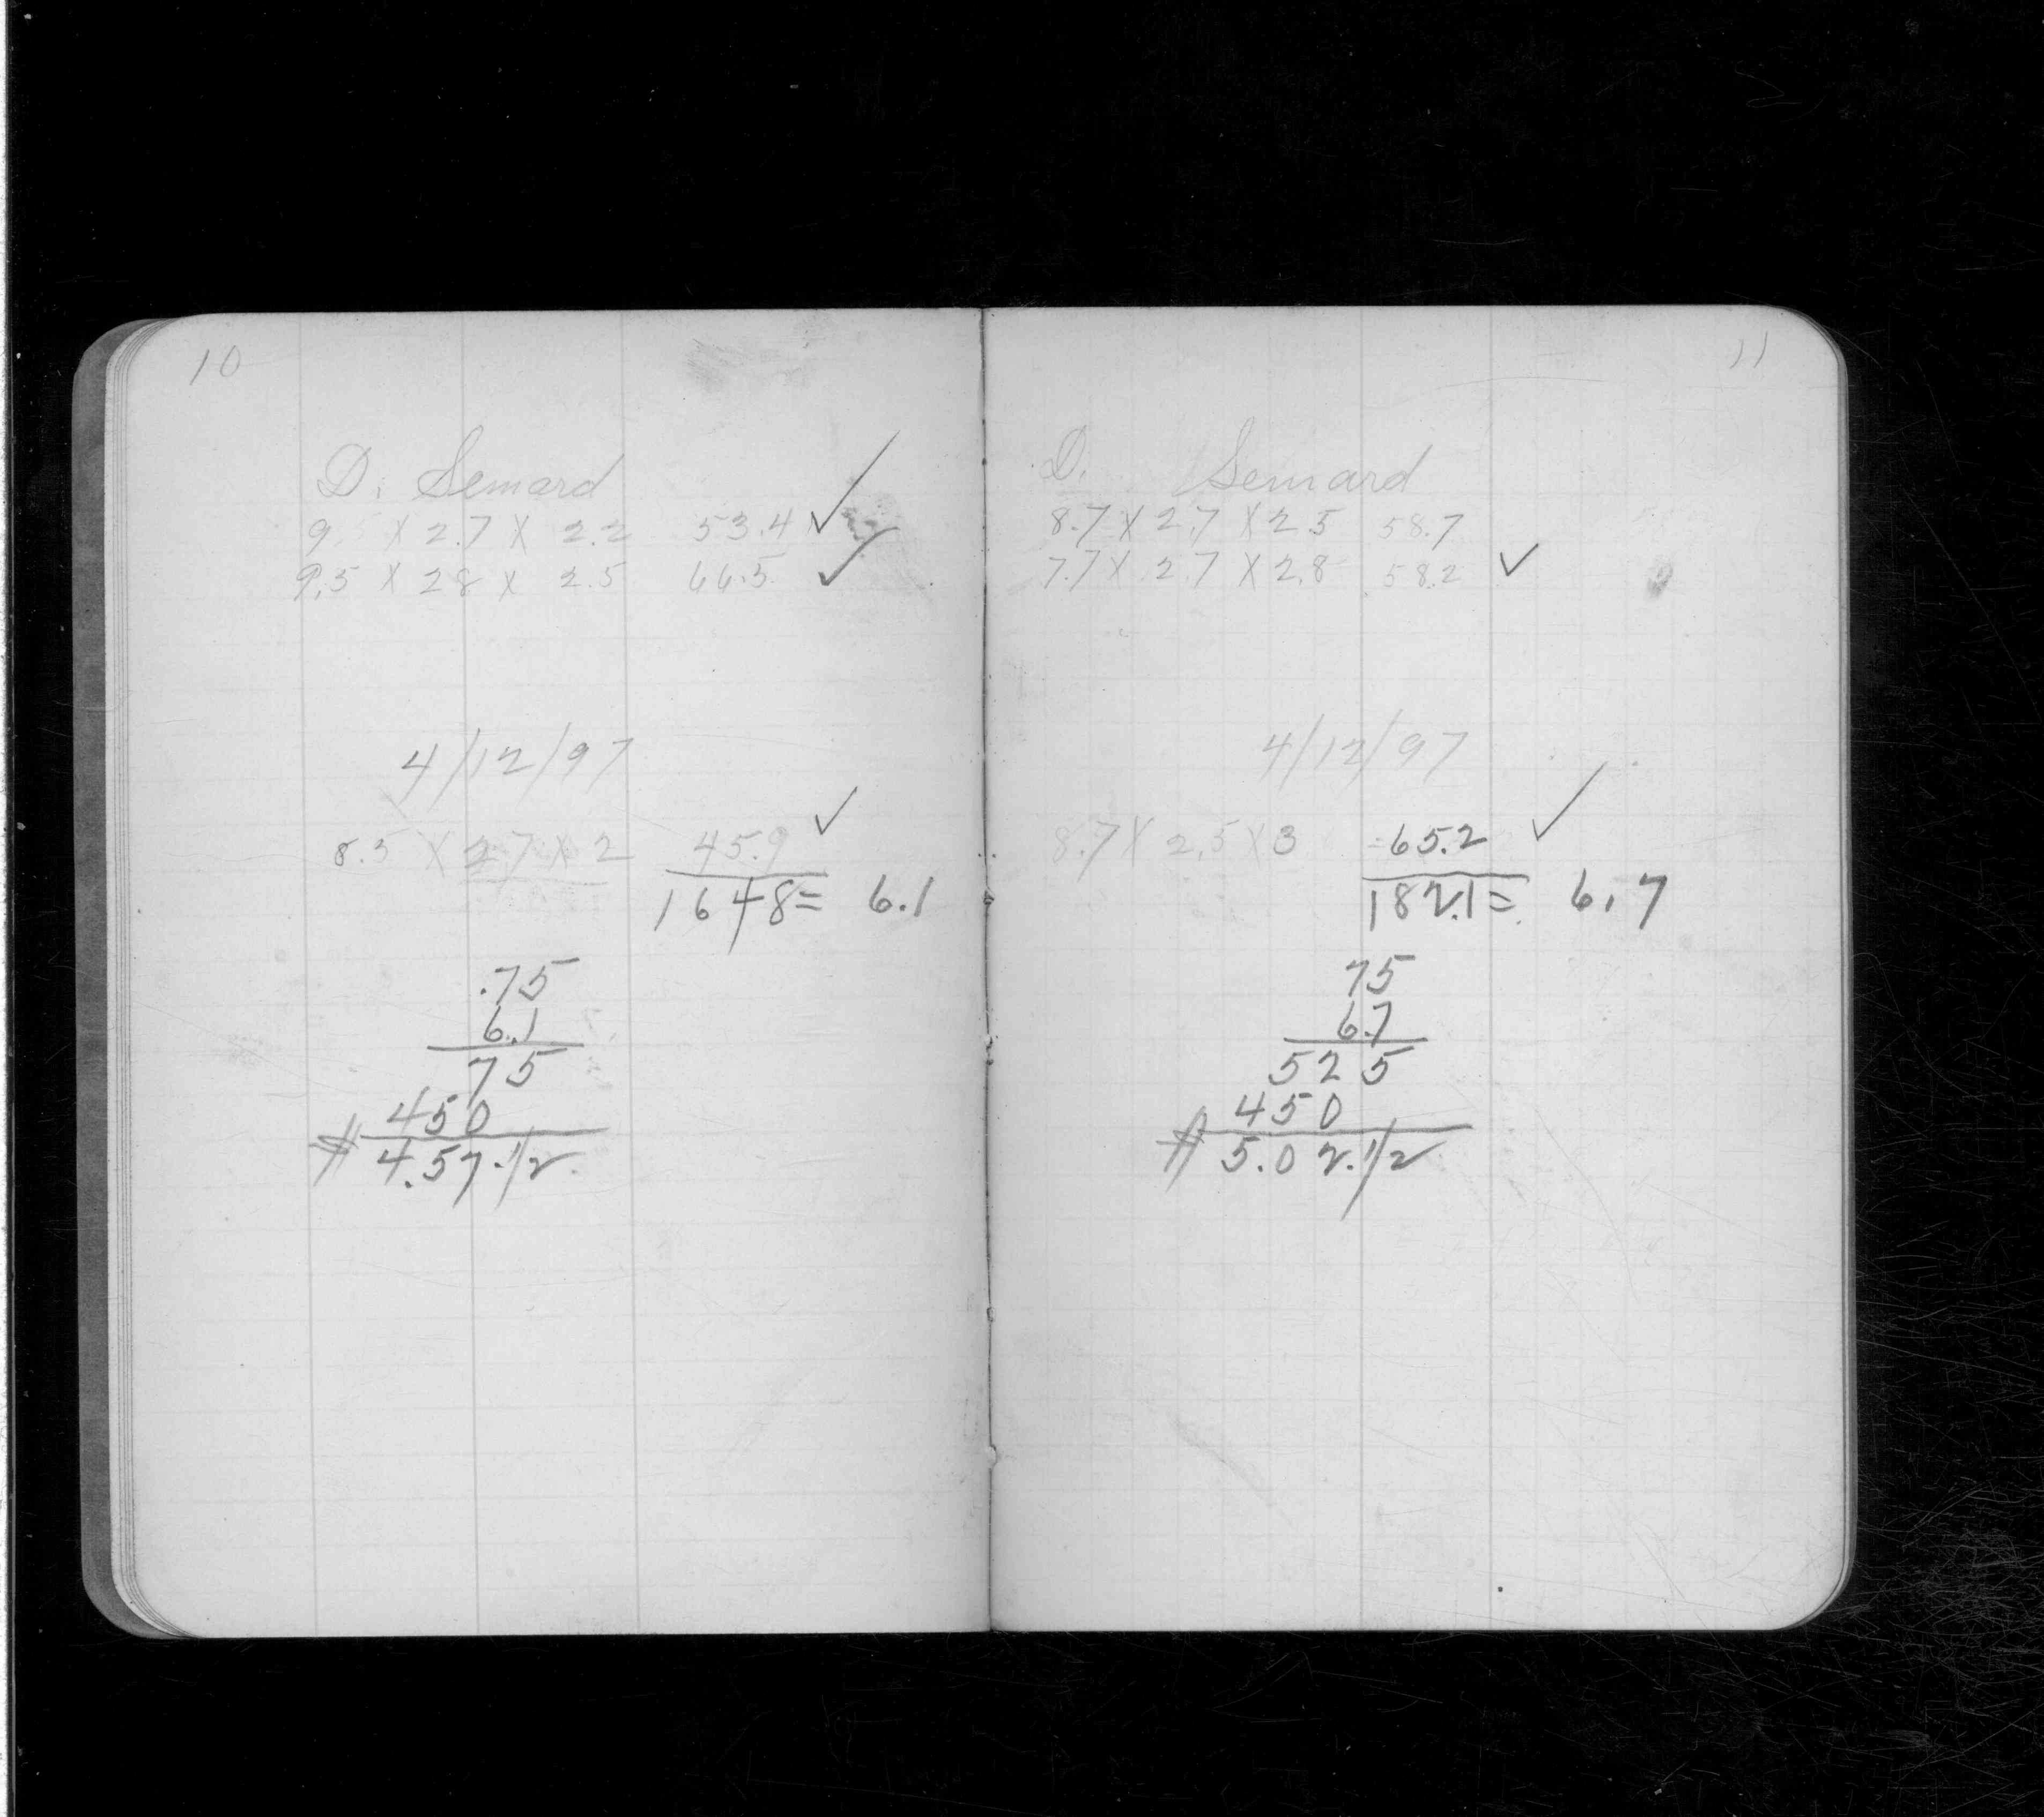 10
D. Semard
9 X 2.7 X 2.2 53.4 ✓
9.5 X 28 X 2.5 66.5 ✓
4/12/97
8.5 X 27 X 2 45.9 ✓
1648 = 6.1
.75
6.1
75
450
$ 4.57.1/2
11
D. Semard
8.7 X 2.7 X 2.5 58.7
7.7 X 2.7 X 2.8 58.2 ✓
4/12/97
8.7 X 2.5 X 3 65.2 ✓
182.1 = 6.7
75
6.7
525
450
$ 5.02.1/2